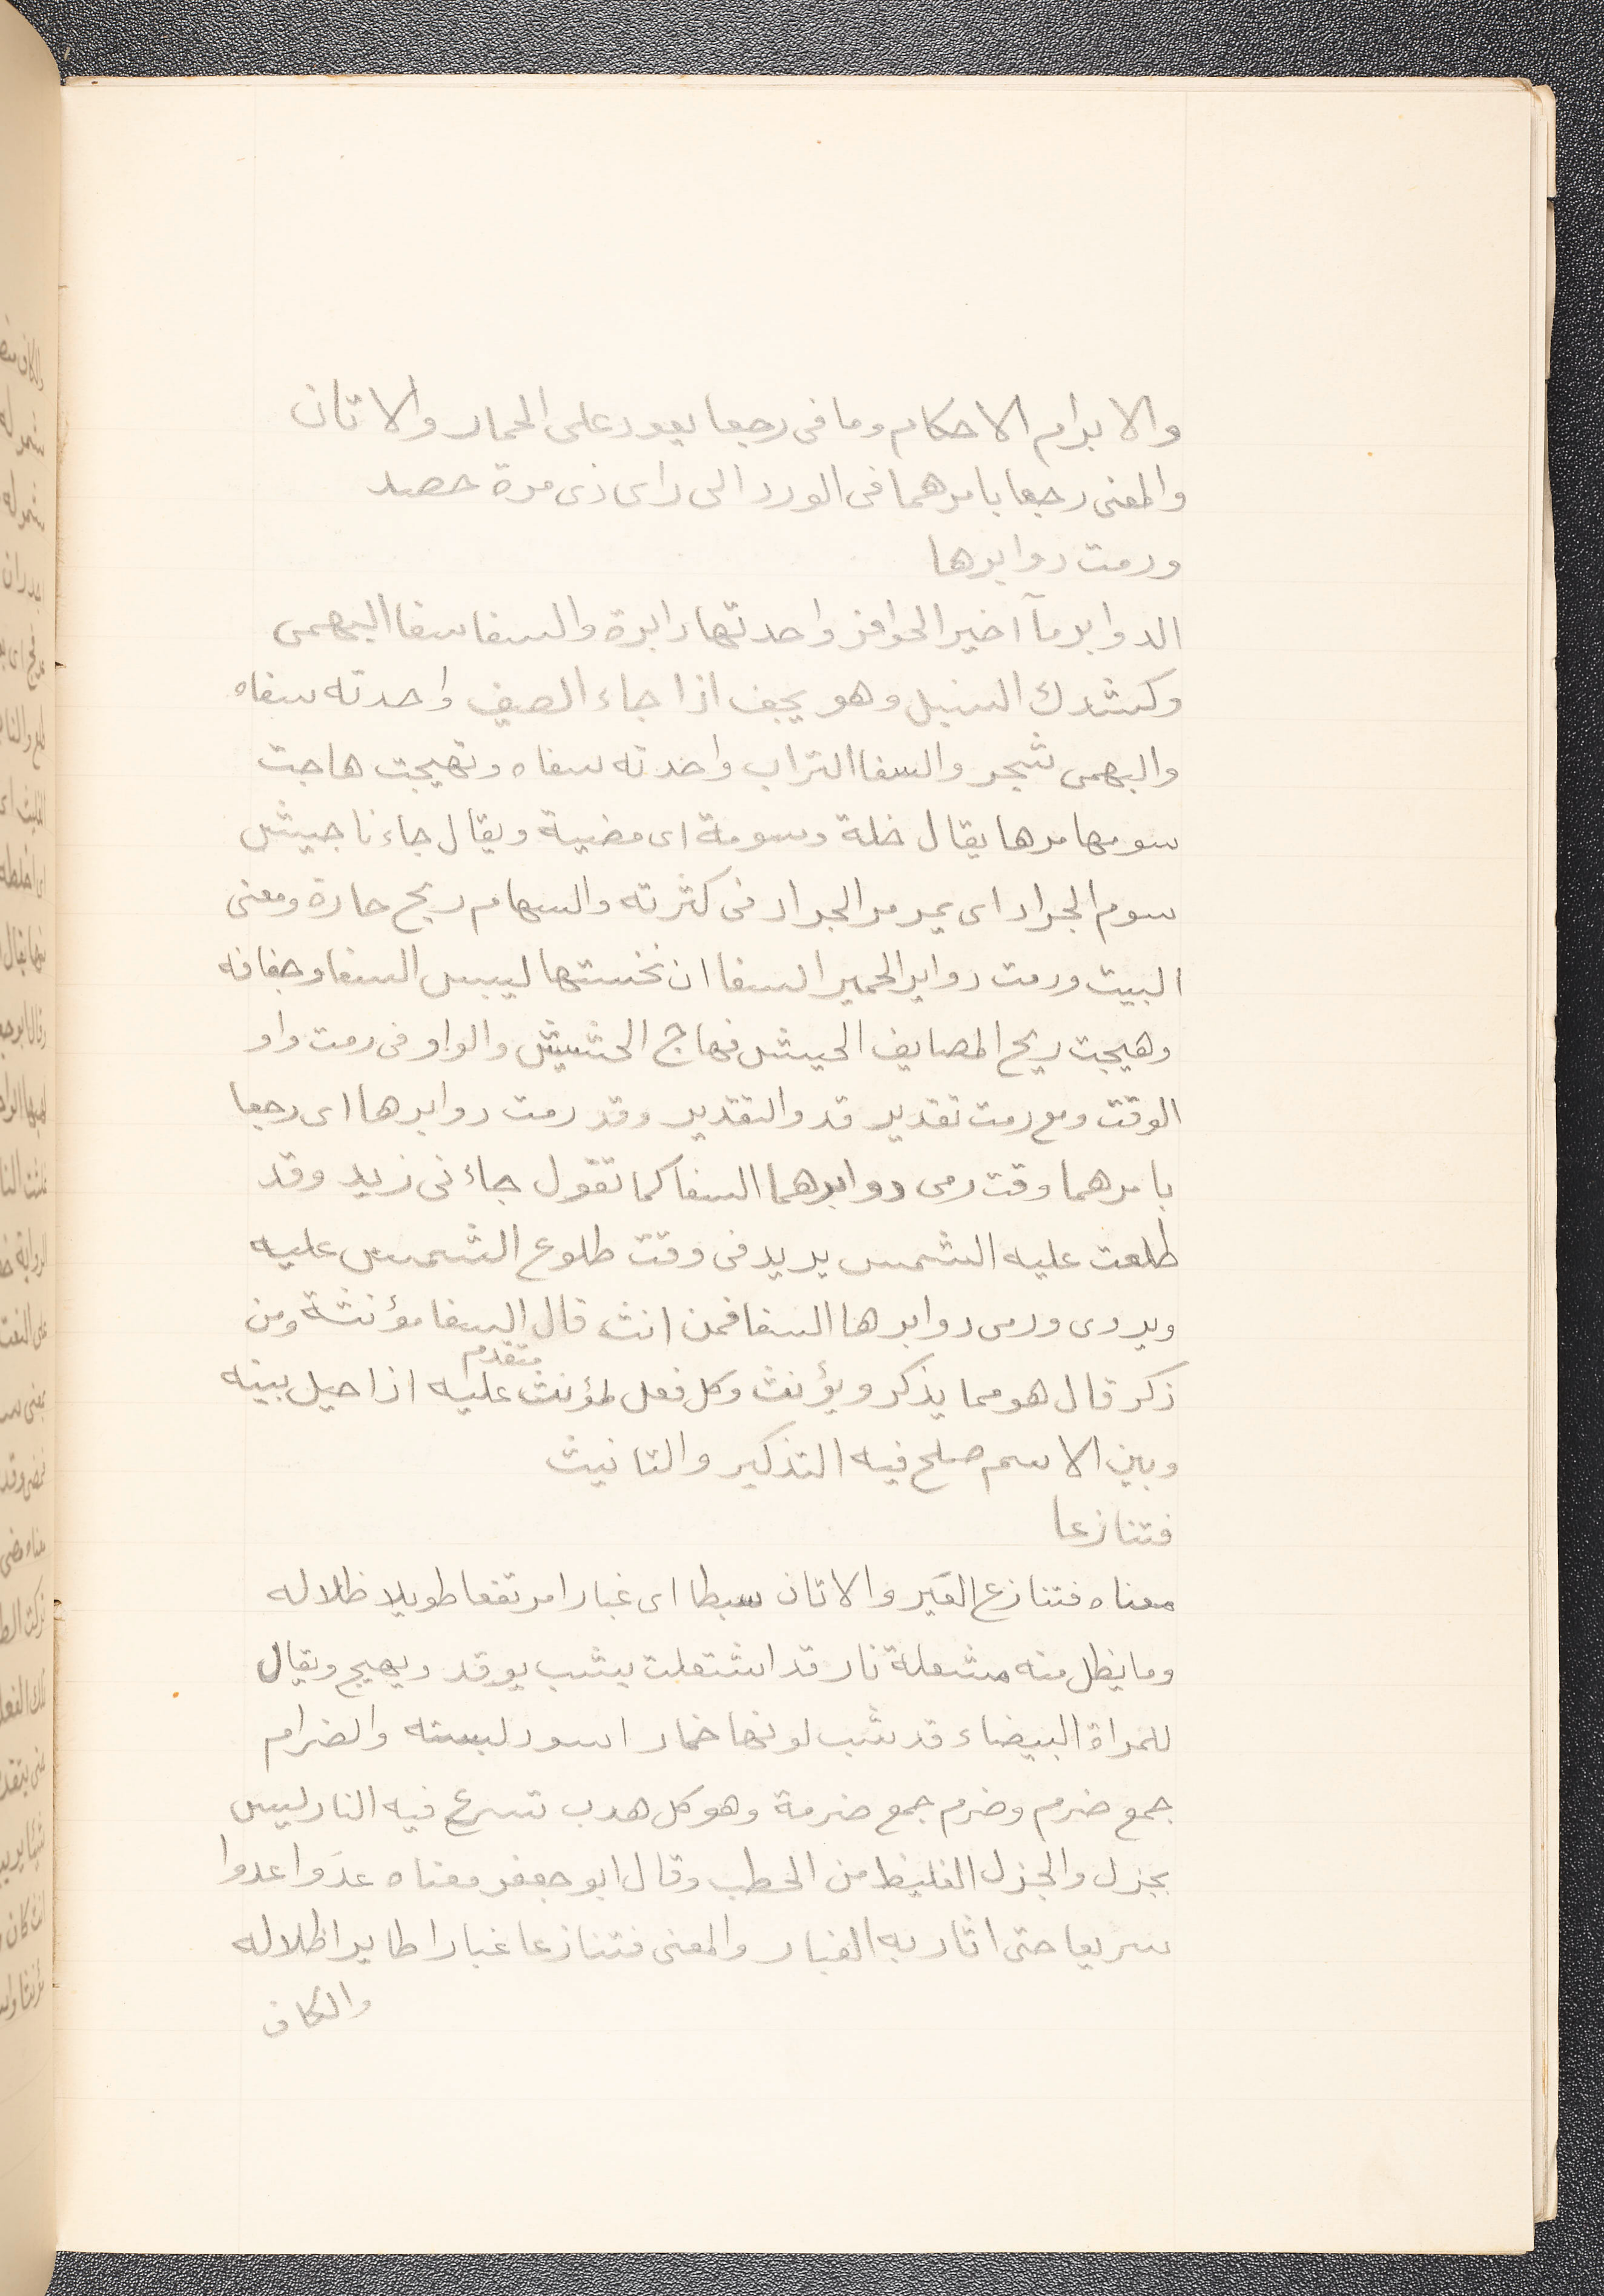 والابرام الاحكام وما فى رجعا يعود على الحمار والاتان
والمعنى رجعا بامرهما فى الورد الى راى ذى مرة حصد
ورمت دوابرها
الدوابر مآ اخير الحوافر واحدتها دابرة والسفا سفا البهمى
وكشوك السنبل وهو يجف اذا جاء الصيف واحدته سفاه
والبهمى شجر والسفا التراب واحدته سفاه وتهيجت هاجت
سومها مرها يقال خلة وسومة اى مضيية ويقال جاءنا جيش
سوم الجراد اى يمر مر الجراد فى كثرته والسهام ريح حارة ومعنى
البيت ورمت دوابر الحمير السفا ان نخستها ليبس السفا وجفافه
وهيجت ريح المصايف الحيش فهاج الحشيش والواو فى رمت واو
الوقت ومع رمت تقدير قد والتقدير وقد رمت دوابرها اى رجعا
بامرهما وقت رمى دوابرهما السفا كما تقول جاءنى زيد وقد
طلعت عليه الشمس يريد فى وقت طلوع الشمس عليه
ويروى ورمى دوابرها السفا فمن انث قال السفا مؤنثة ومن
ذكر قال هو مما يذكر ويؤنث وكل فعل لمؤنث متقدم عليه اذا حيل بينه
وبين الاسم صلح فيه التذكير والتانيث
فتنازعا
معناه فتنازع العَير والاتان سبطا اى غبارا مرتفعا طويلا ظلاله
وما يظل منه مشعلة نار قد اشتعلت يشب يوقد ويهيج ويقال
للمراة البيضاء قد شب لونها خمار اسود لبسته والضرام
جمع ضرم وضرم جمع ضرمة وهو كل هدب تسرع فيه النار ليس
بجزل والجزل الغليظ من الحطب وقال ابو جعفر معناه عدَوا عدوا
سريعا حتى اثار به الغبار والمعنى فتنازعا غبارا طايرا ظلاله
والكاف